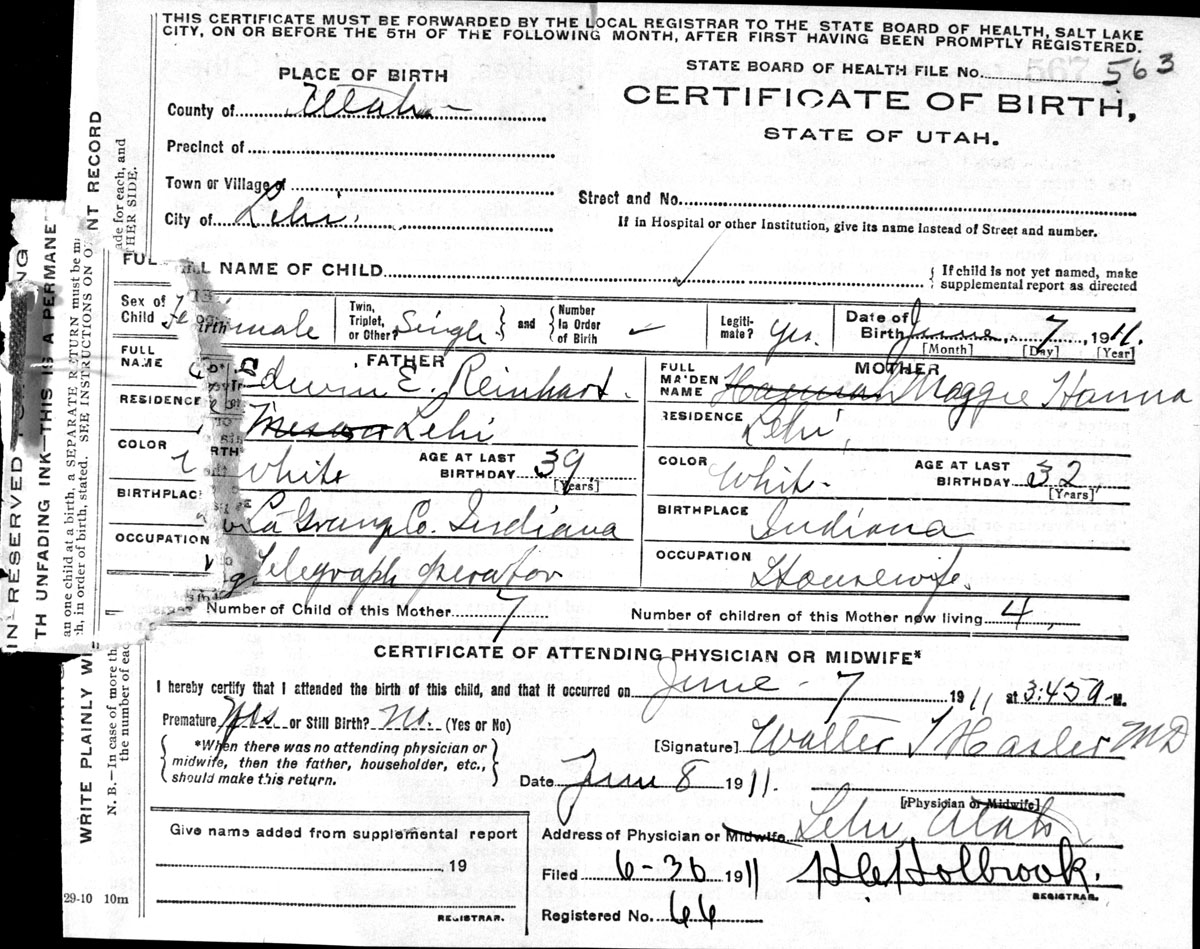 THIS CERTIFICATE MUST BE FORWARDED BY THE LOCAL REGISTRAR TO THE STATE BOARD OF HEALTH, SALT LAKE
CITY, ON OR BEFORE THE 5TH OF THE FOLLOWING MONTH, AFTER FIRST HAVING BEEN PROMPTLY REGISTERED.
STATE BOARD OF HEALTH FILE No. 563
PLACE OF BIRTH
CERTIFICATE OF BIRTH,
STATE OF UTAH.
County of Utah
Precinct of
Town or Village of
Street and No.
City of Lehi.
If in Hospital or other Institution, give its name instead of Street and number.
FULL NAME OF CHILD
{ If child is not yet named, make
supplemental report as directed
Sex of Child Female
Twin, Triplet, or Other? Single } and { Number In Order of Birth ✓
Legiti-mate? Yes.
Date of Birth June 7, 1911.
[Month] [Day] [Year]
FATHER
FULL NAME Edwin E. Reinhart.
RESIDENCE Lehi
COLOR White
AGE AT LAST BIRTHDAY 39
[Years]
BIRTHPLACE La Grange Co. Indiana
OCCUPATION Telegraph operator
MOTHER
FULL MAIDEN NAME Hannah Maggie Hanna
RESIDENCE Lehi
COLOR White
AGE AT LAST BIRTHDAY 32
[Years]
BIRTHPLACE Indiana
OCCUPATION Housewife.
Number of Child of this Mother 7
Number of children of this Mother now living 4,
CERTIFICATE OF ATTENDING PHYSICIAN OR MIDWIFE*
I hereby certify that I attended the birth of this child, and that it occurred on June - 7 1911 at 3:45 a-M.
Premature Yes or Still Birth? No. (Yes or No)
{ *When there was no attending physician or
midwife, then the father, householder, etc.,
should make this return. }
[Signature] Walter T Hasler MD
Date June 8 1911.
[Physician or Midwife]
Address of Physician or Midwife Lehi, Utah
Give name added from supplemental report
19
REGISTRAR.
Filed 6-30 1911 H C Holbrook.
REGISTRAR.
Registered No. 66
29-10 10m
IN RESERVED
TH UNFADING INK—THIS IS A PERMANE
NT RECORD
WRITE PLAINLY WI
N. B.—In case of more th
an one child at a birth, a SEPARATE RETURN must be m
ade for each, and
the number of each
h, in order of birth, stated. SEE INSTRUCTIONS ON O
THER SIDE.